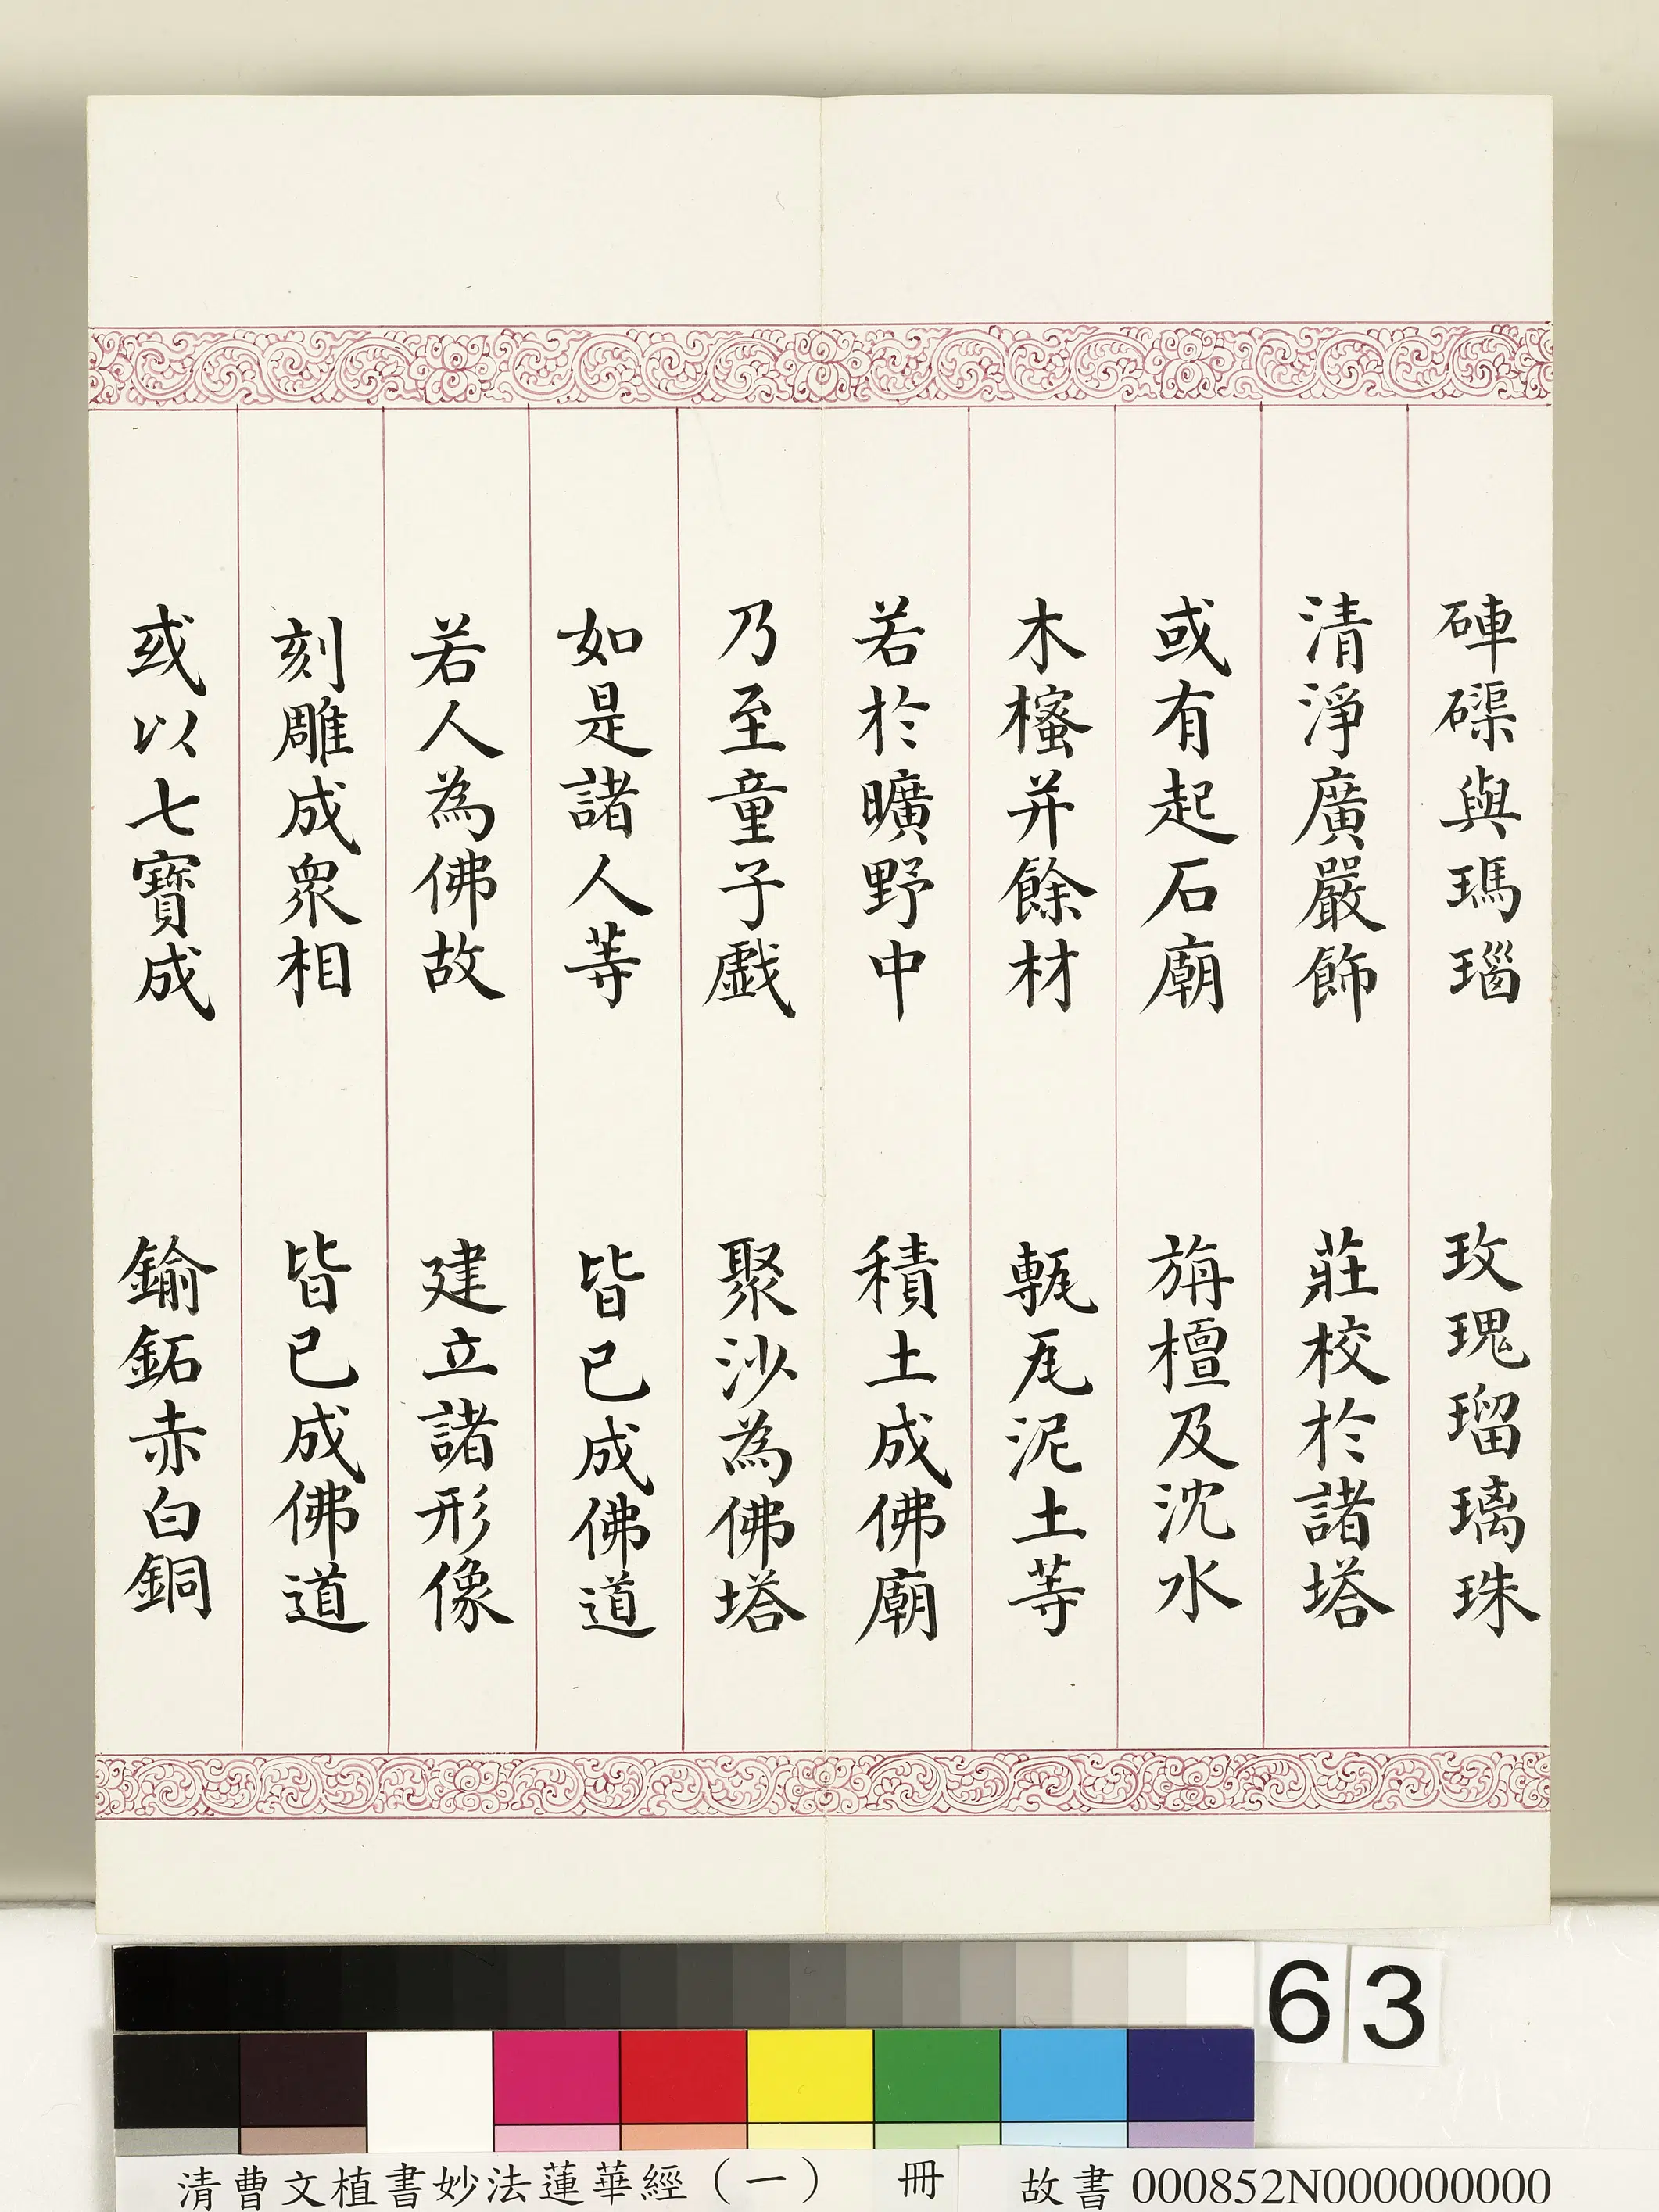 硨磲與瑪瑙　玫瑰瑠璃珠
清淨廣嚴飾　莊校於諸塔
或有起石廟　旃檀及沈水
木櫁并餘材　甎瓦泥土等
若於曠野中　積土成佛廟
乃至童子戲　聚沙為佛塔
如是諸人等　皆已成佛道
若人為佛故　建立諸形像
刻雕成衆相　皆已成佛道
或以七寶成　鍮鉐赤白銅
63
清曹文植書妙法蓮華經（一）　冊　故書 000852N000000000